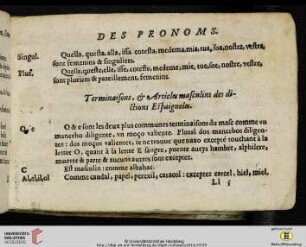 DES PRONOMS.
Singul. Quella, questa, alla, issa, cotesta, medema, mia, tua, soa, nostra, vestra,
sont feminins & singuliers.
Plur. Quelle, queste, elle, isse, coteste, medeme, mie, tue, soe, nostre, vestre,
sont pluriers & pareillement, feminins.
Terminaisons, & Articles masculins des di-
ctions Espaignoles.
O, e O & e sont les deux plus communes terminaisons du masc comme vn
mancebo diligente, vn moço valiente. Plural dos mancebos diligen-
tes: dos moços valientes, ie ne trouue que naxo excepté touchant à la
lettre O, quant à la lettre E sangre, puente aueys hambre, alphilere,
muerte & parte & aucuns autres sont exceptez.
C Est masculin: comme albahac.
Al, el, il, ol Comme caudal, papel, perexil, caracol: exceptez carcel, hiel, miel,
Ll 5
Universitätsbibliothek Heidelberg